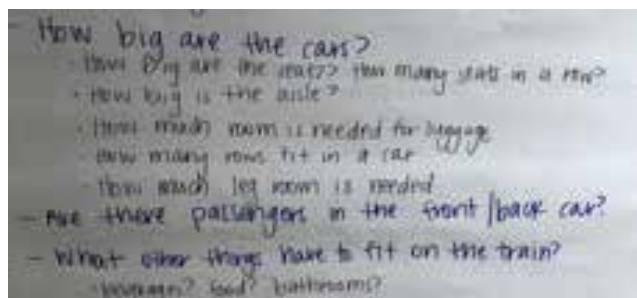 - How big are the cars?
· How big are the seats? How many seats in a row?
· How big is the aisle?
· How much room is needed for luggage
· How many rows fit in a car
· How much leg room is needed
- Are there passangers in the front/back car?
- What other things have to fit on the train?
food? bathrooms?